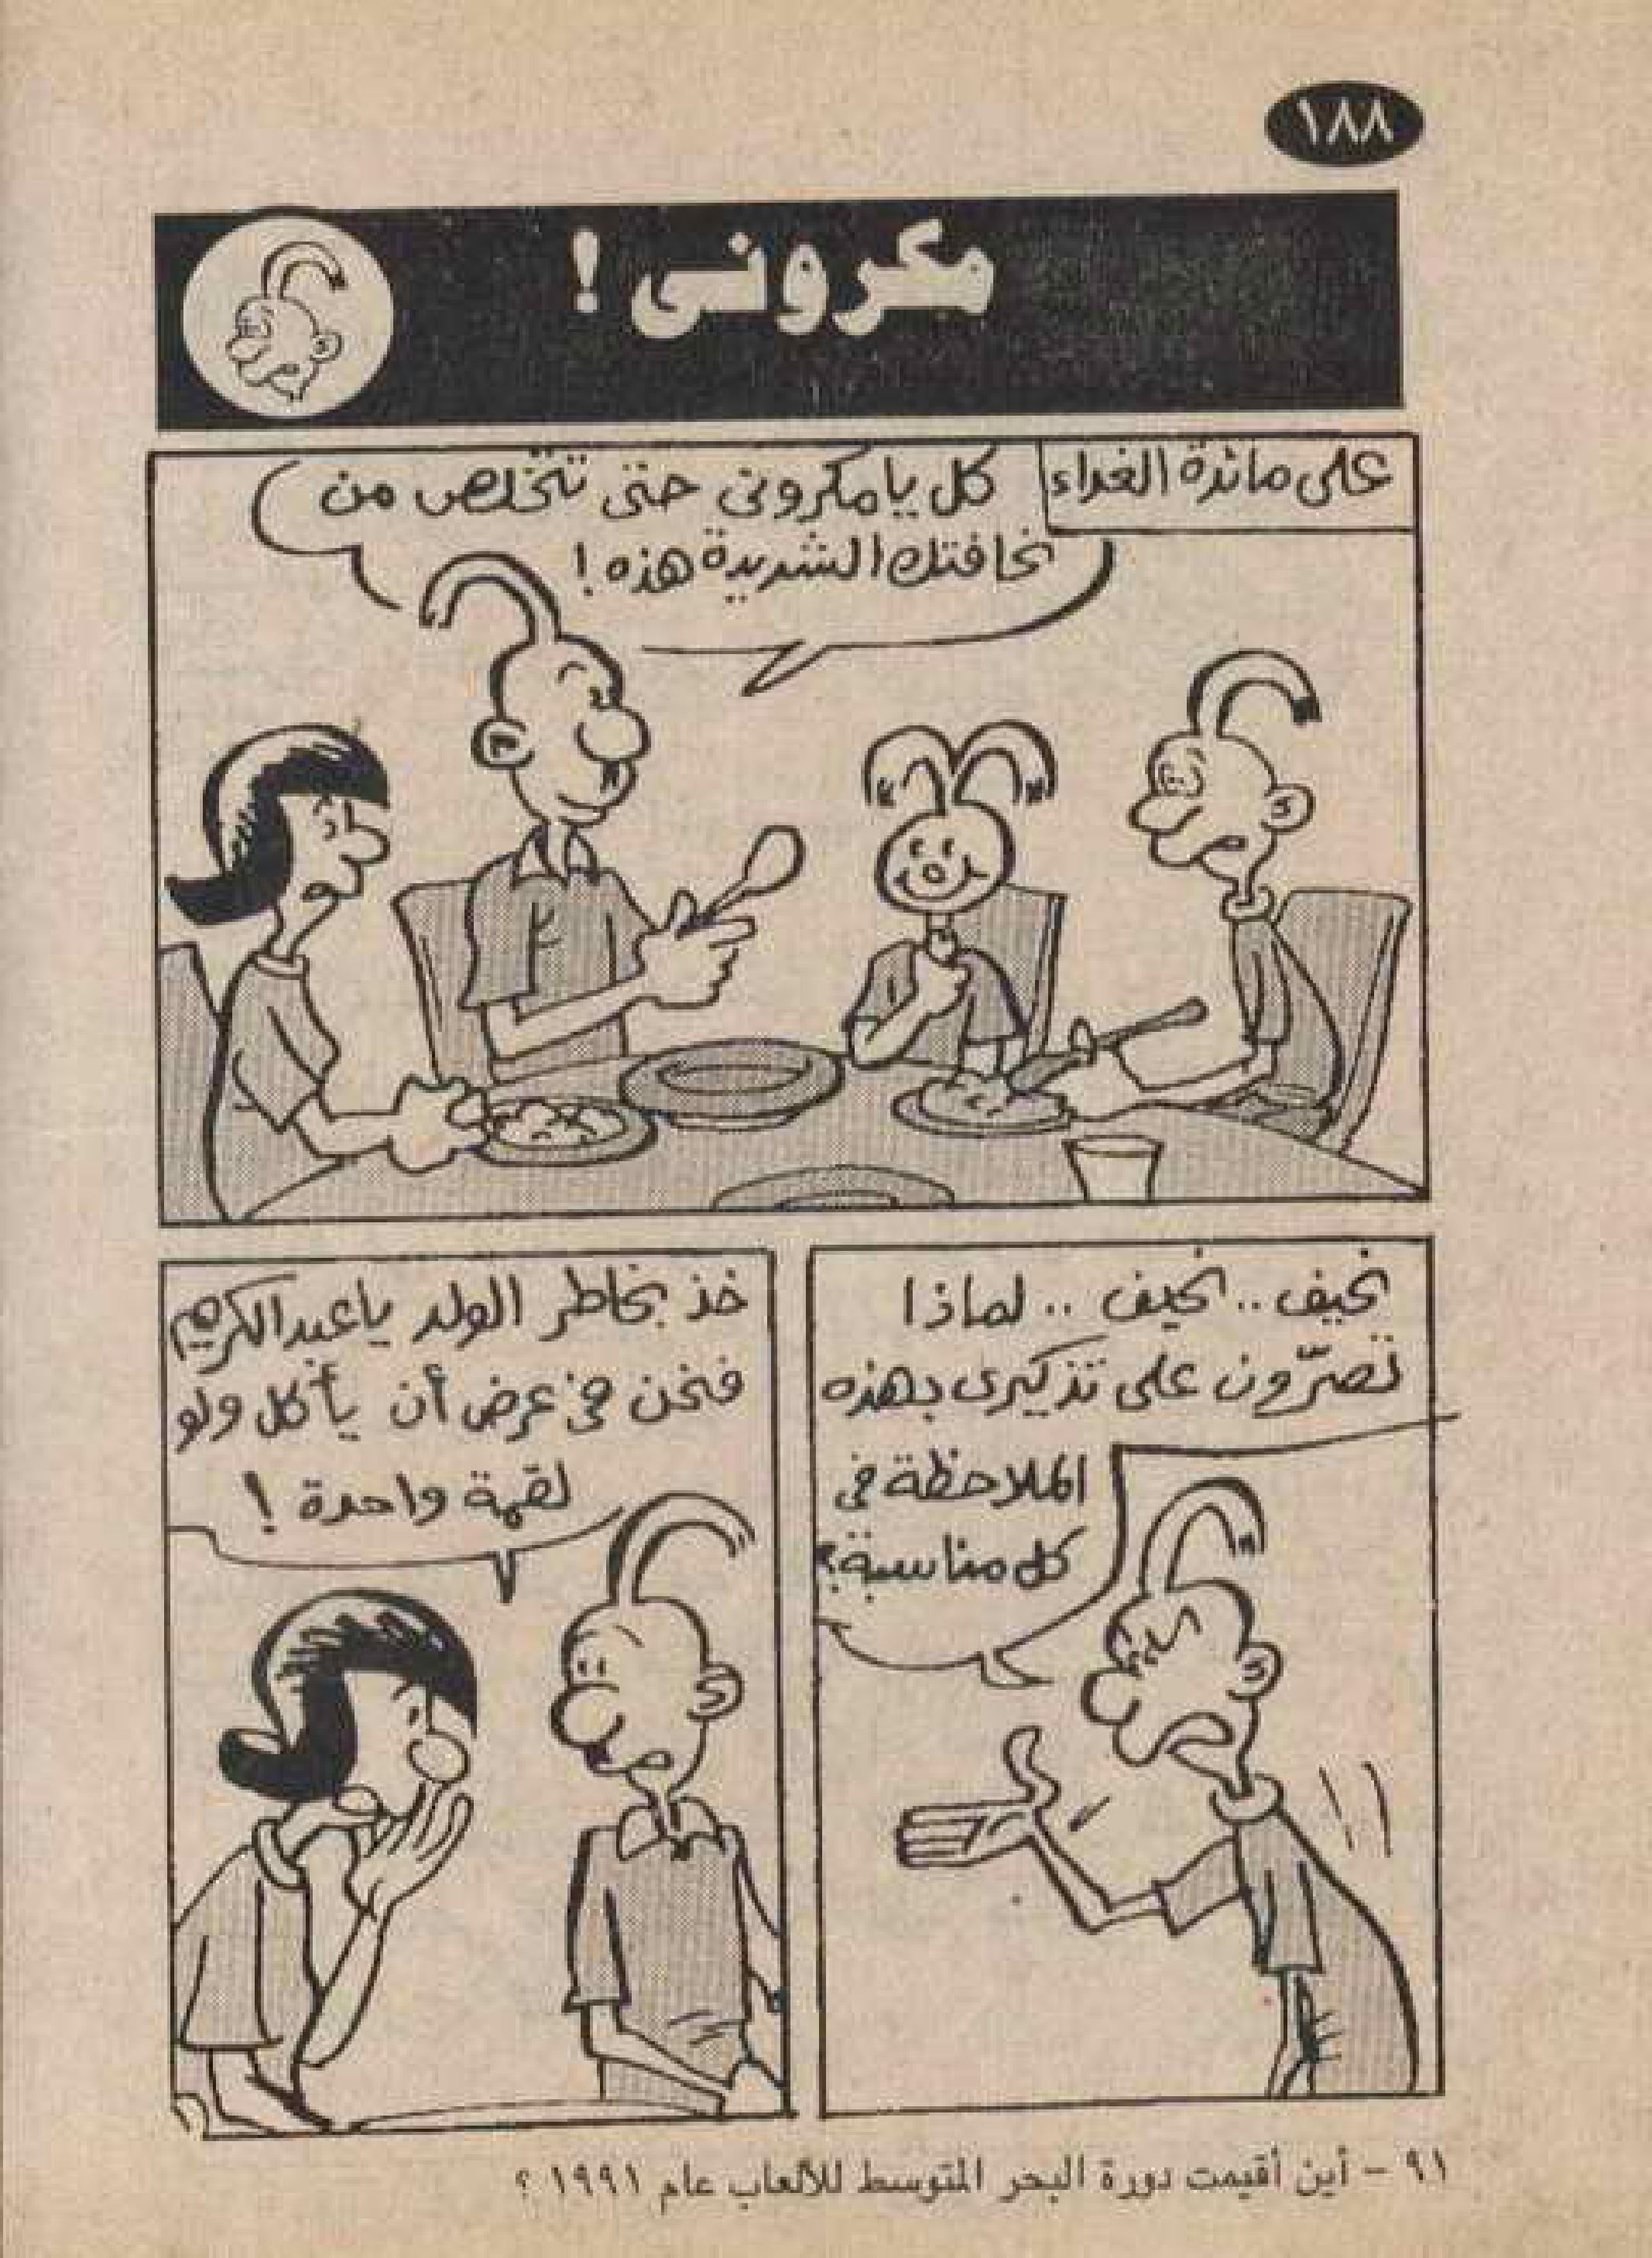 ١٨٨
مكرونى !
على مائدة الغداء
كل يا مكرونى حتى تتخلص من
نحافتك الشديدة هذه !
نحيف .. نحيف .. لماذا
تصرّون على تذكيرى بهذه
الملاحظة فى
كل مناسبة ؟
خذ بخاطر الولد يا عبدالكريم
فنحن فى عرض أن يأكل ولو
لقمة واحدة !
٩١ - أين أقيمت دورة البحر المتوسط للألعاب عام ١٩٩١ ؟